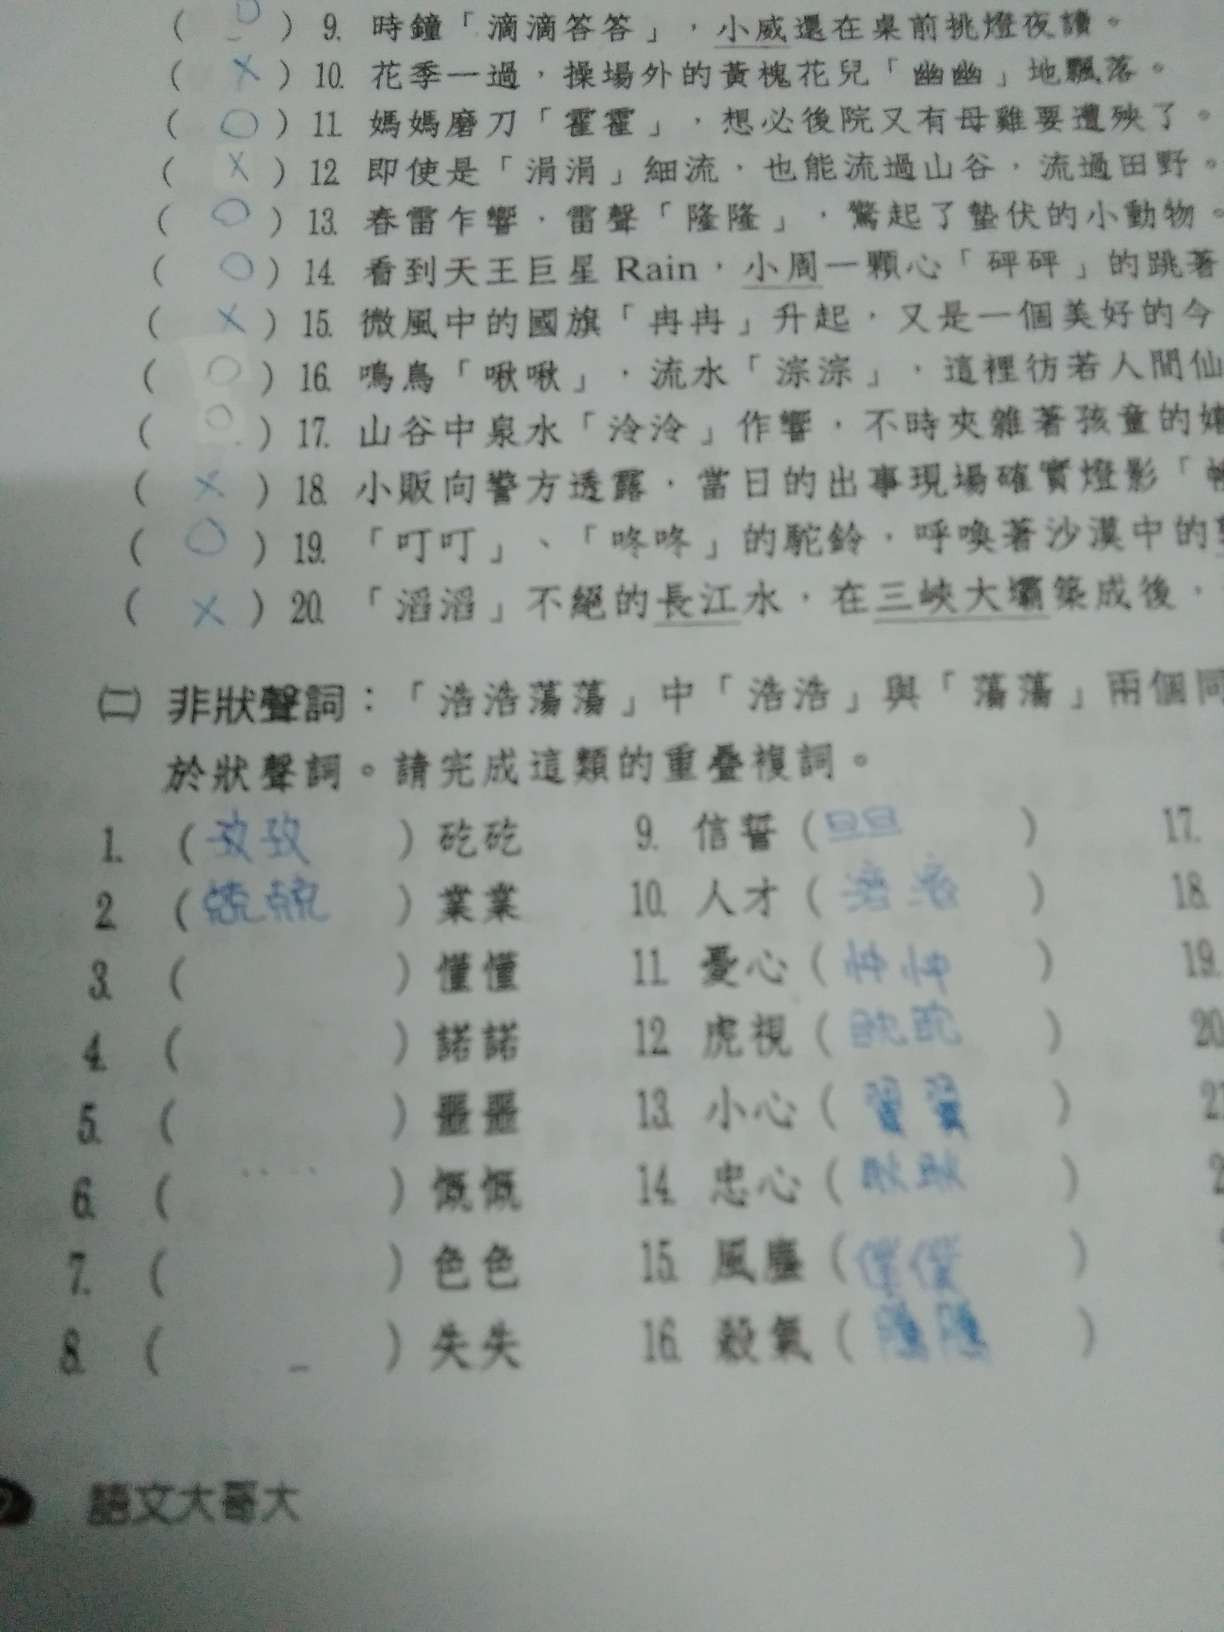 ( O ) 9. 時鐘「滴滴答答」，小威還在桌前挑燈夜讀。
( × ) 10. 花季一過，操場外的黃槐花兒「幽幽」地飄落。
( O ) 11. 媽媽磨刀「霍霍」，想必後院又有母雞要遭殃了。
( × ) 12. 即使是「涓涓」細流，也能流過山谷，流過田野。
( O ) 13. 春雷乍響，雷聲「隆隆」，驚起了蟄伏的小動物。
( O ) 14. 看到天王巨星Rain，小周一顆心「砰砰」的跳著
( × ) 15. 微風中的國旗「冉冉」升起，又是一個美好的今
( O ) 16. 鳴鳥「啾啾」，流水「淙淙」，這裡彷若人間仙
( O ) 17. 山谷中泉水「泠泠」作響，不時夾雜著孩童的嬉
( × ) 18. 小販向警方透露，當日的出事現場確實燈影「
( O ) 19. 「叮叮」、「咚咚」的駝鈴，呼喚著沙漠中的
( × ) 20. 「滔滔」不絕的長江水，在三峽大壩築成後，
㈡ 非狀聲詞：「浩浩蕩蕩」中「浩浩」與「蕩蕩」兩個同
於狀聲詞。請完成這類的重疊複詞。
1. ( 孜孜 ) 矻矻 9. 信誓 ( 旦旦 ) 17.
2. ( 兢兢 ) 業業 10. 人才 ( 濟濟 ) 18.
3. ( ) 懂懂 11. 憂心 ( 忡忡 ) 19.
4. ( ) 諾諾 12. 虎視 ( 眈眈 ) 20
5. ( ) 噩噩 13. 小心 ( 翼翼 ) 2
6. ( ) 慨慨 14. 忠心 ( 耿耿 ) 2
7. ( ) 色色 15. 風塵 ( 僕僕 )
8. ( ) 失失 16. 殺氣 ( 騰騰 )
語文大哥大